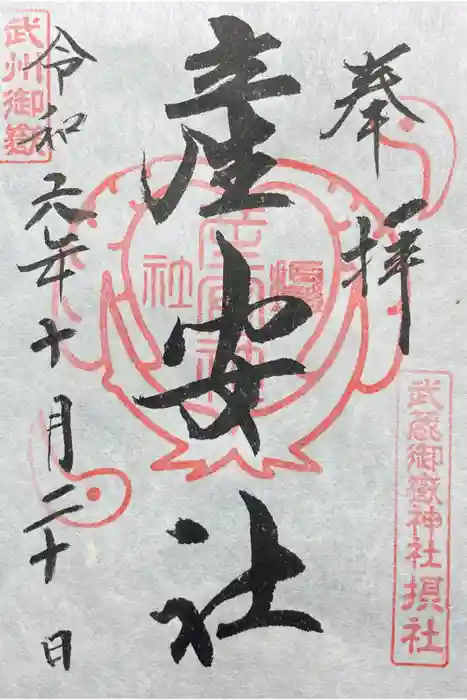 奉拝
武蔵御嶽神社摂社
産安社
令和六年十月二十日
武州御嶽